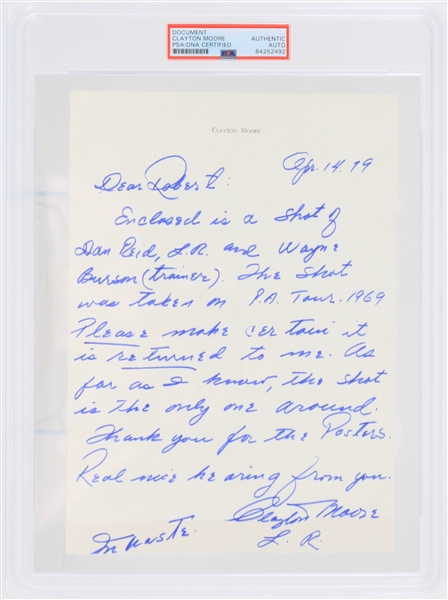 DOCUMENT
CLAYTON MOORE
PSA/DNA CERTIFIED
AUTHENTIC
AUTO
84252492
PSA
CLAYTON MOORE
Apr. 14. 79
Dear Robert:
Enclosed is a shot of
Dan Reid, L.R. and Wayne
Burson (trainer). The shot
was taken on P.A. Tour. 1969
Please make certain it
is returned to me. As
far as I know, the shot
is the only one around.
Thank you for the Posters.
Real nice hearing from you.
Clayton Moore
In Haste.
L. R.